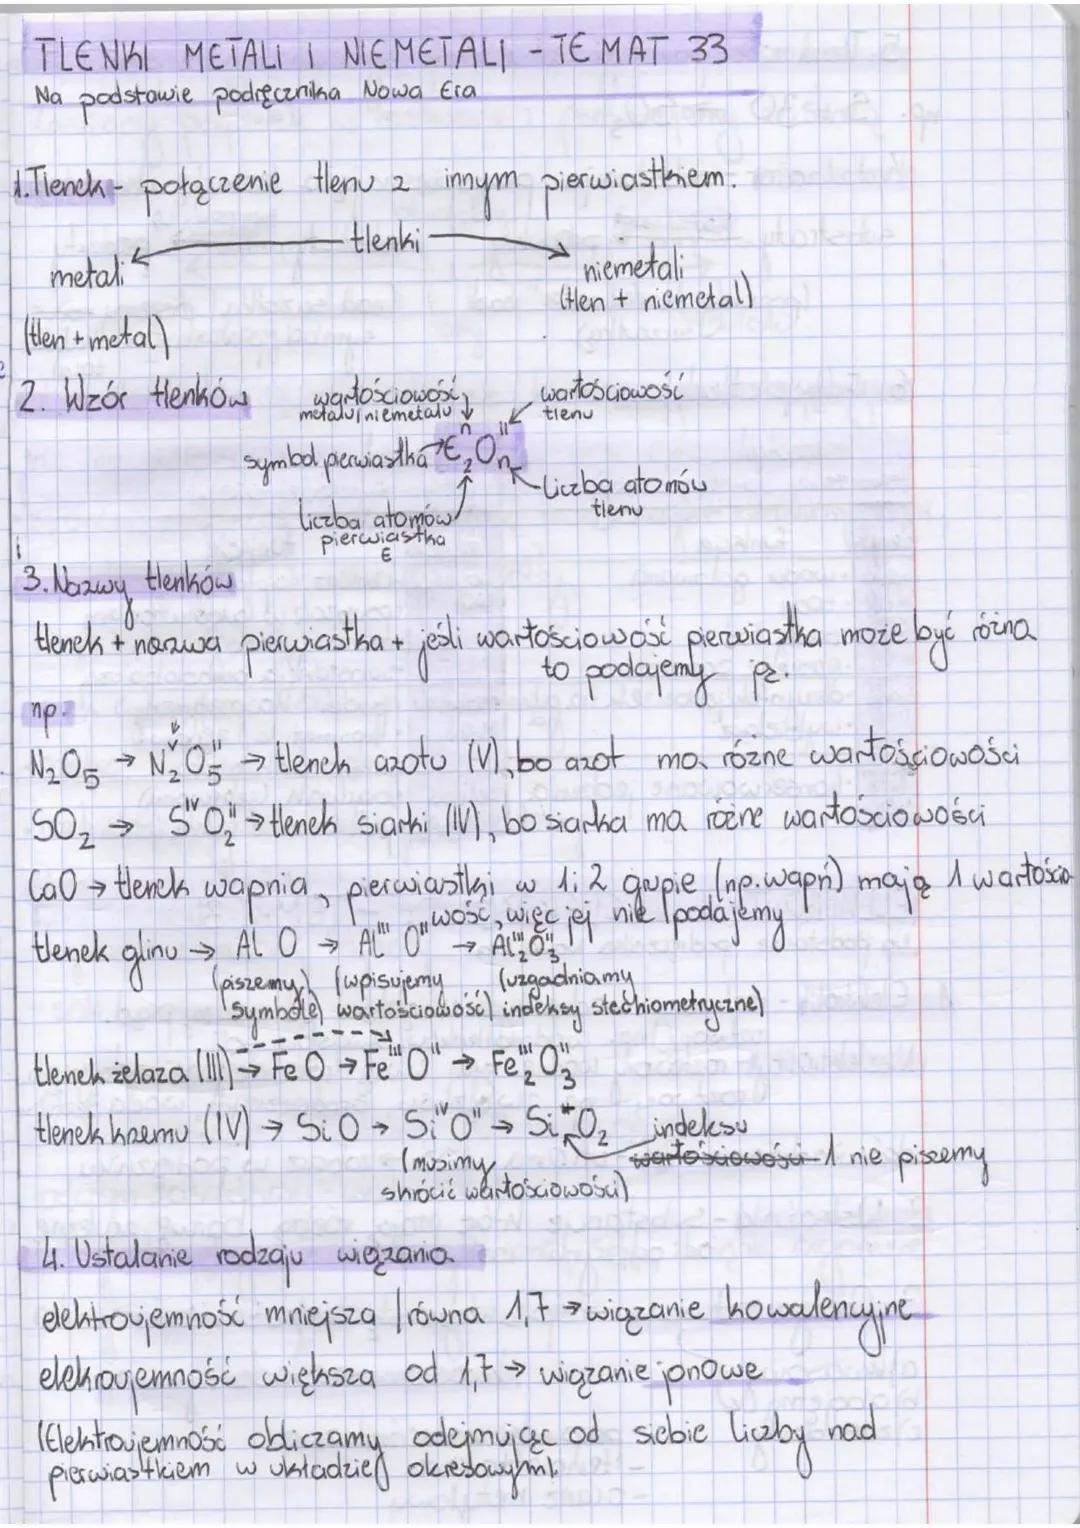 TLENKI METALI I NIEMETALI - TEMAT 33
Na podstawie podręcznika Nowa Era
1. Tlenek - połączenie tlenu z innym pierwiastkiem.
tlenki
metali
niemetali
(tlen + niemetal)
(tlen + metal)
2. Wzór tlenków
wartościowość
metalu/niemetalu
wartościowość
tlenu
symbol pierwiastka
Eⁿ₂Oᴵᴵₙ
liczba atomów
tlenu
liczba atomów
pierwiastka
E
3. Nazwy tlenków
tlenek + nazwa pierwiastka + jeśli wartościowość pierwiastka może być różna
to podajemy ją.
np.
N₂O₅ → Nⱽ₂Oᴵᴵ₅ → tlenek azotu (V), bo azot ma różne wartościowości
SO₂ → Sᴵⱽ Oᴵᴵ₂ → tlenek siarki (IV), bo siarka ma różne wartościowości
CaO → tlenek wapnia, pierwiastki w 1 i 2 grupie (np. wapń) mają 1 wartościo-
wość, więc jej nie podajemy
tlenek glinu → Al O → Alᴵᴵᴵ Oᴵᴵ → Alᴵᴵᴵ₂Oᴵᴵ₃
(piszemy (wpisujemy (uzgadniamy
symbole) wartościowość) indeksy stechiometryczne)
tlenek żelaza (III) → Fe O → Feᴵᴵᴵ Oᴵᴵ → Feᴵᴵᴵ₂ Oᴵᴵ₃
tlenek krzemu (IV) → Si O → Siᴵⱽ Oᴵᴵ → Si O₂ indeksu
wartościowości 1 nie piszemy
(musimy
skrócić wartościowości)
4. Ustalanie rodzaju wiązania
elektroujemność mniejsza / równa 1,7 → wiązanie kowalencyjne
elekroujemność większa od 1,7 → wiązanie jonowe
(Elektroujemność obliczamy odejmując od siebie liczby nad
pierwiastkiem w układzie okresowym)